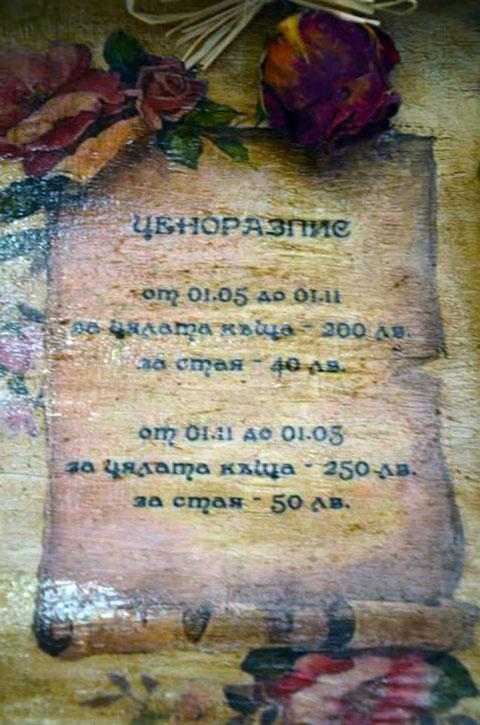 ЦЕНОРАЗПИС
от 01.05 до 01.11
за цялата къща - 200 лв.
за стая - 40 лв.
от 01.11 до 01.05
за цялата къща - 250 лв.
за стая - 50 лв.